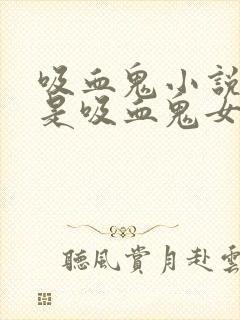 吸血鬼小說
是吸血鬼女
聽風賞月赴雲